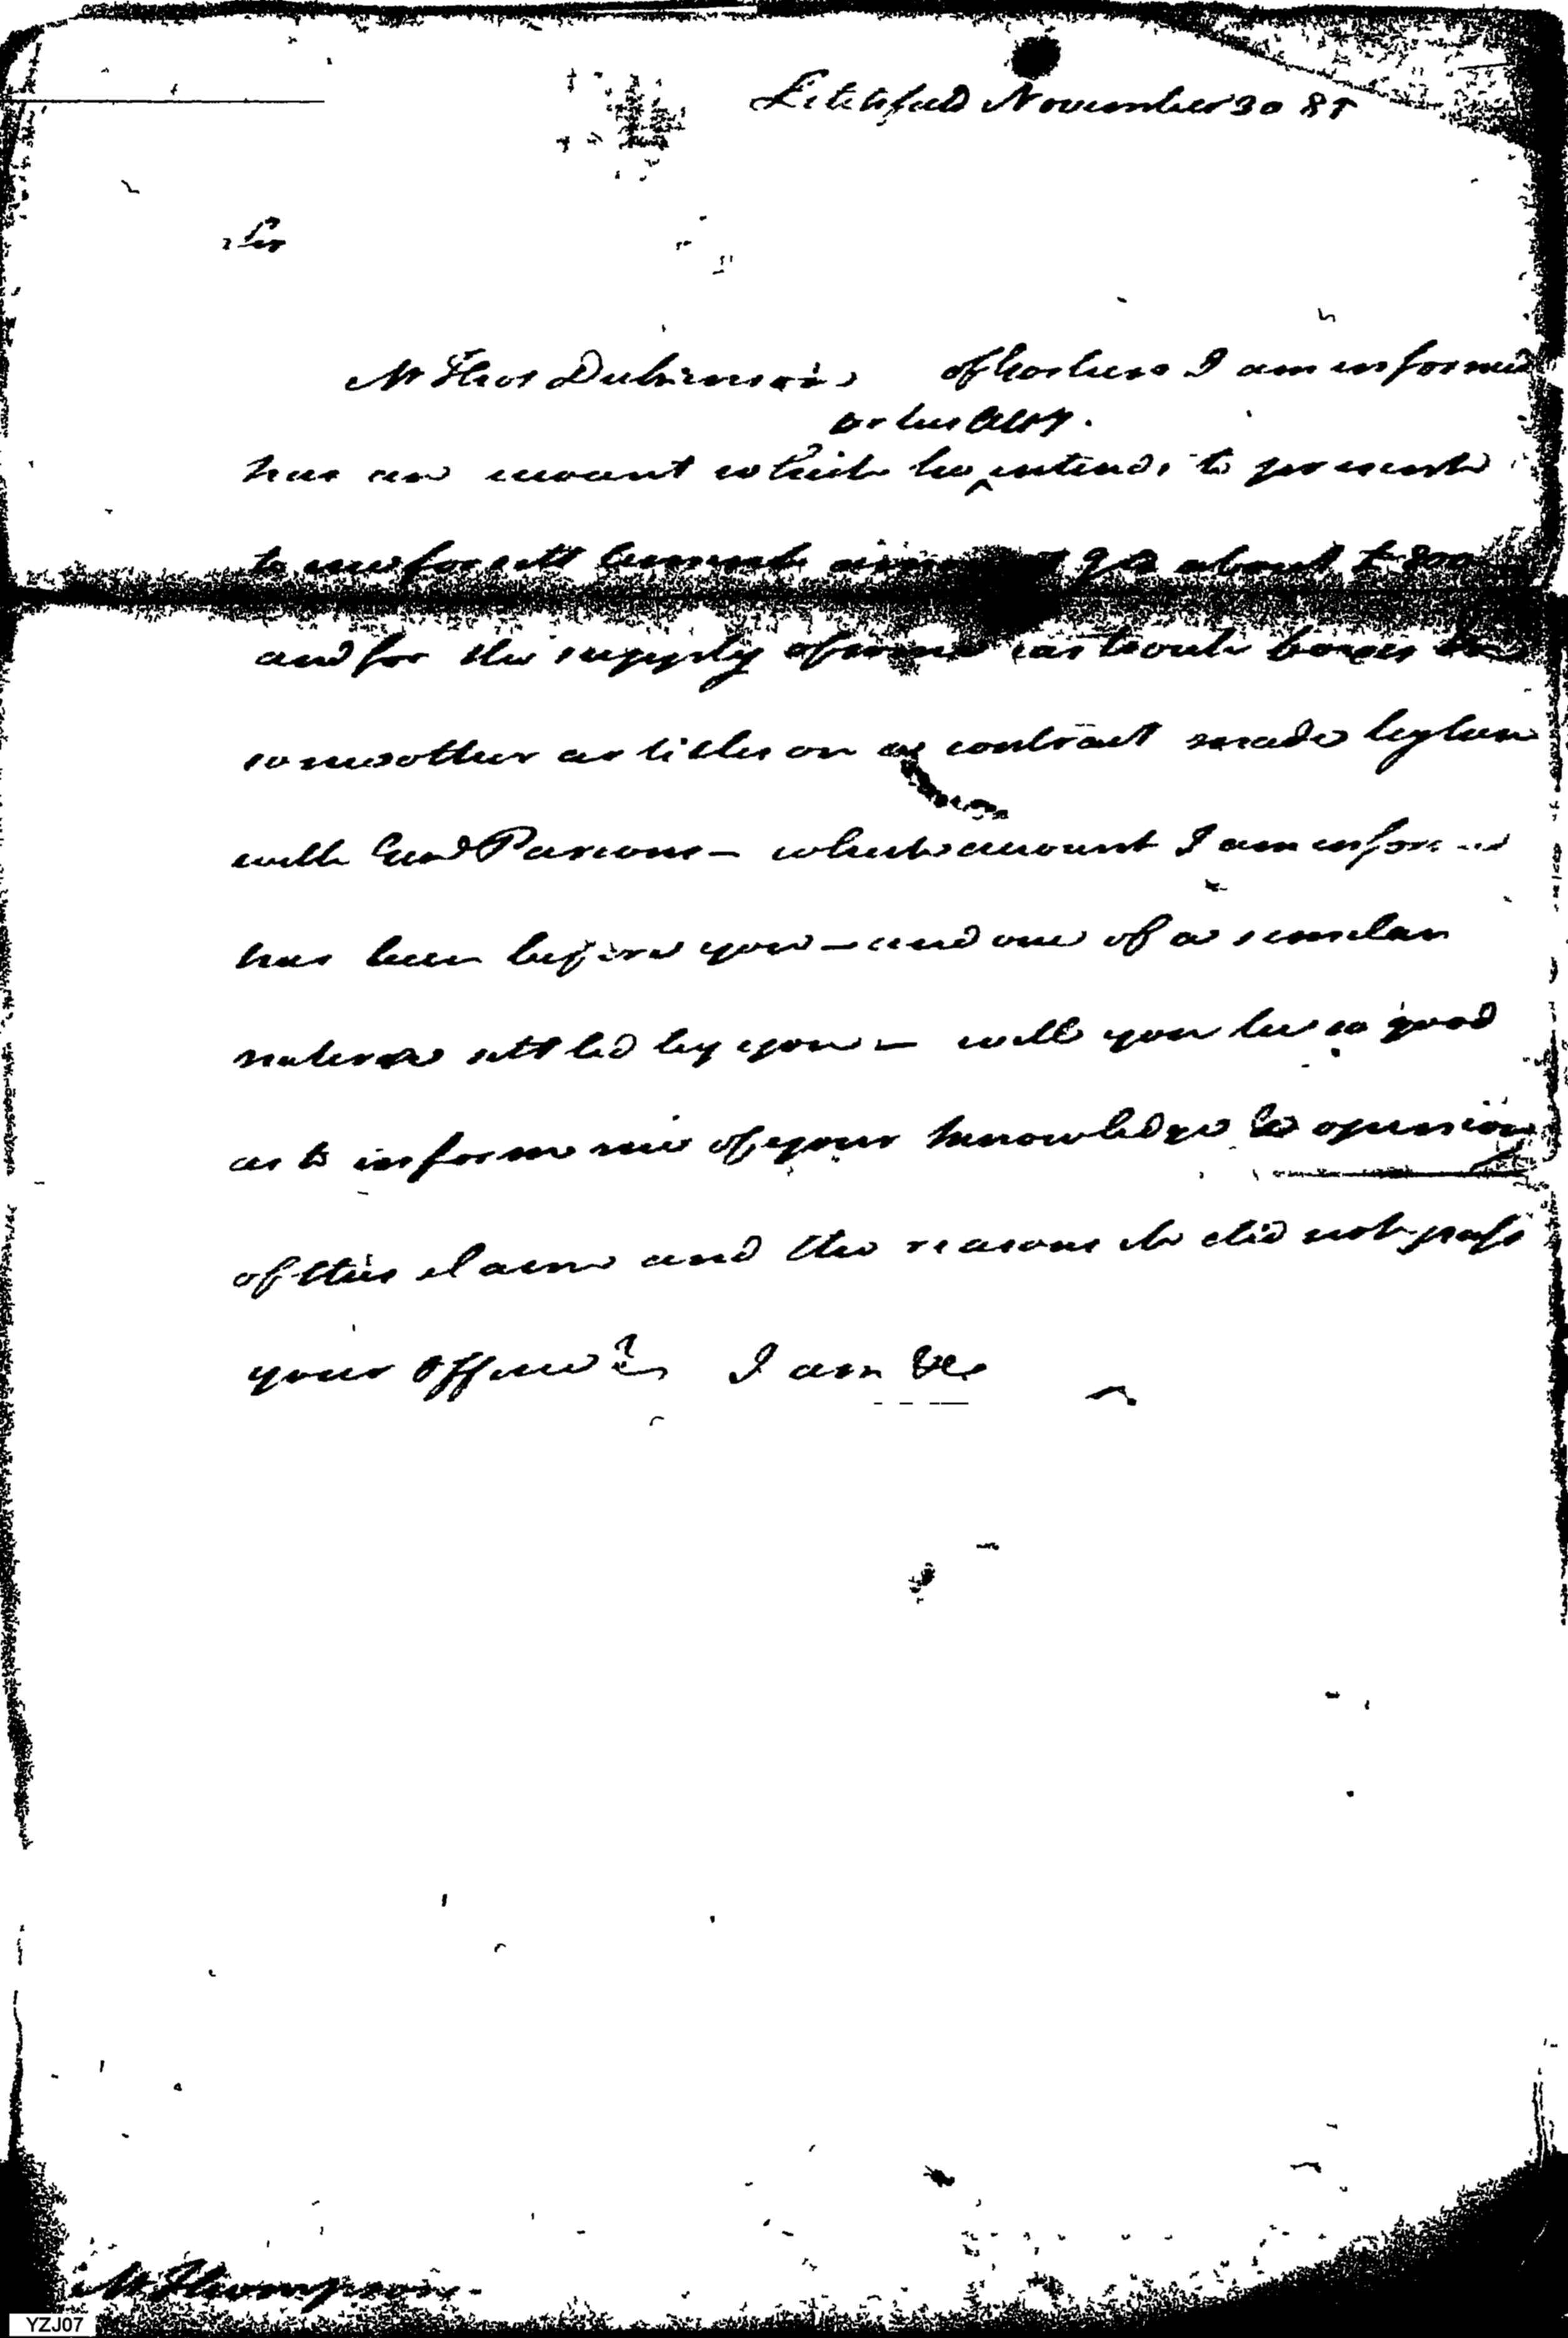 Litchfield November 30 85
Sir
Mr Thos Dickinson of I am informed
or his Atty.
has an account which he ‸ intends to present
to me for settlement about £ 800
and for the supply of some cartouch boxes
some other articles on a contract made by him
with Genl Parsons — which account I am informed
has been before you — and one of a similar
nature settled by you — will you be so good
as to inform me of your knowledge & opinion
of this claim and the reasons it did not pass
your office? I am &c
Mr Thompson
YZJ07